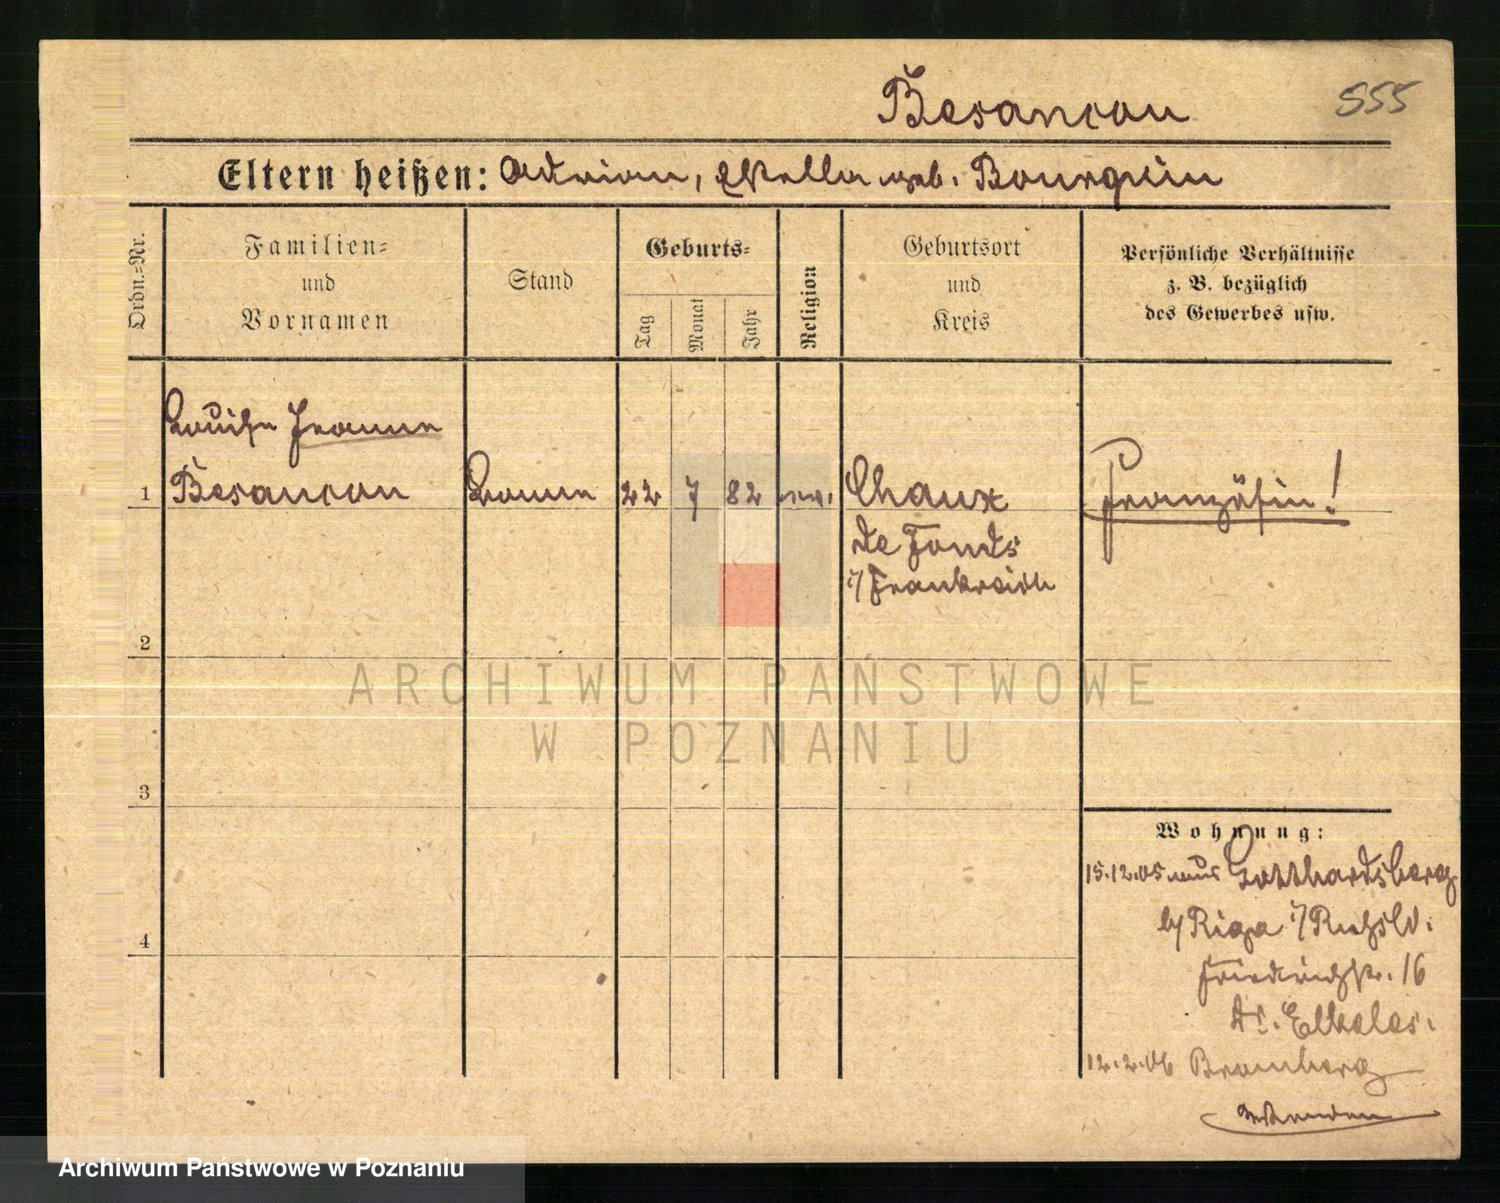 Besancon 555
Eltern heißen: Adrian, Stella geb. Bourquin
Ordn.=Nr. Familien= und Vornamen Stand Geburts= Tag Monat Jahr Religion Geburtsort und Kreis Persönliche Verhältnisse z. B. bezüglich des Gewerbes usw.
Louise Jeanne
1 Besancon Bonne 22 7 82 ev. Chaux Französin!
de Fonds
i/ Frankreich
2
ARCHIWUM PAŃSTWOWE
W POZNANIU
3
Wohnung:
15.12.05 aus Gotthardsberg
b/ Riga i/ Rußld.
Friedrichstr. 16
12.2.06 Bromberg
4
Archiwum Państwowe w Poznaniu